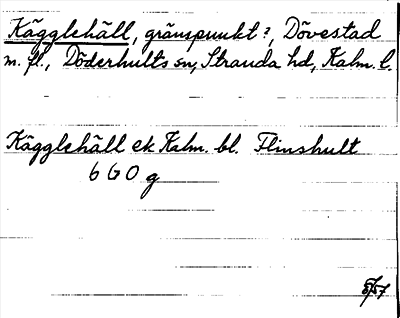 Kägglehäll, gränspunkt?, Dövestad
m. fl., Döderhults sn, Stranda hd, Kalm. l.
Kägglehäll ek Kalm. bl. Flinshult
6 G O g